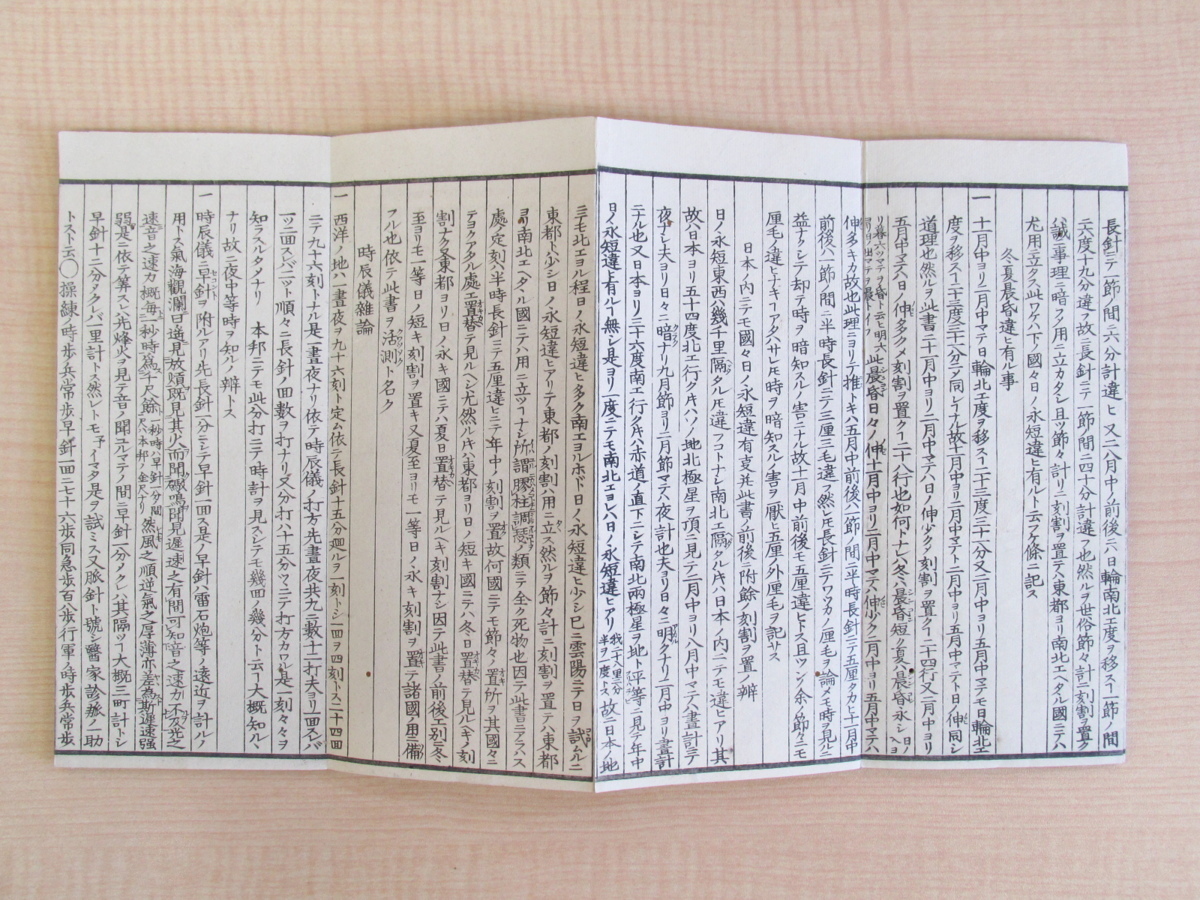 長針ニテ一節ノ間ニ六分計違ヒ又二八月中ノ前後ニハ日輪南北エ度ヲ移ス一節ノ間
ニ六度十九分違フ故ニ長針ニテ一節間ニ四十分計違フ也然ルヲ世俗節々計ニ刻割ヲ置ク
ハ誠ニ事理ニ暗ラク用ニ立カタシ且ツ節々計リニ刻割ヲ置テハ東都ヨリ南北エヘタル國ニテハ
尤用ニ立タス此ワケハ下ノ國々日ノ永短違ヒ有ルト云フケ條ニ記ス
冬夏晨昏違ヒ有ル事
一 十一月中ヨリ二月中マテ日輪北エ度ヲ移ス二十三度二十八分又二月中ヨリ五月中マテモ日輪北エ
度ヲ移ス二十三度二十八分ニテ同シ
道理也然ルヲ此書ニ十一月中ヨリ二月中マテハ日ノ伸少ク刻割ヲ置ク二十四行又二月中ヨリ
五月中マテハ日ノ伸多クメ刻割ヲ置ク二十八行也如何トナレハ冬ハ晨昏短ク夏ハ晨昏永シ
此晨昏日々ノ伸十一月中ヨリ二月中マテハ伸少ク二月中ヨリ五月中マテハ
伸多キカ故也此理ニヨリテ推トキハ五月中前後ハ一節ノ間ニ半時長針ニテ五厘タカヒ十一月中
前後ハ一節ノ間ニ半時長針ニテ三厘三毛違フ然レ𪜈長針ニテワツカノ厘毛ヲ論メ時ヲ見ルニ
益ナクシテ却テ時ヲ暗知スルノ害ニナル故十一月中前後モ五厘違ヒトス且ツ
厘毛ノ違ヒナキニアラサレ𪜈時ヲ暗知スルノ害ヲ厭ヒ五厘ノ外厘毛ヲ記サス
日本ノ内ニテモ國々日ノ永短違有変并此書ノ前後ニ附餘ノ刻割ヲ置ノ辨
日ノ永短東西ハ幾千里隔タル𪜈違フコトナシ南北エ隔タルキハ日本ノ内ニテモ違ヒアリ其
故ハ日本ヨリ五十四度北エ行タキハソノ地北極星ヲ頂ニ見テ二月中ヨリ八月中マテハ晝計ニテ
夜ナシ夫ヨリ日々ニ暗ナリ九月節ヨリ二月節マテハ夜計也夫ヨリ日々ニ明クナリ二月中ヨリ晝計
ニナル也又日本ヨリ三十六度南エ行タルキハ赤道ノ直下ニシテ南北兩極星ヲ地ト平等ニ見テ年中
日ノ永短違ヒ有ル无シ是ヨリ一度ニテモ南北エヨレハ日ノ永短違ヒアリ故ニ日本ノ地
ニテモ北エヨル程日ノ永短違ヒ多ク南エヨルホド日ノ永短違ヒ少シ已ニ雲陽ニテ日ヲ試ムルニ
東都ト少シ日ノ永短違ヒアリテ東都ノ刻割ハ用ニ立ス然ルヲ節々計ニ刻割ヲ置テハ東都
ヨリ南北エヘタル國ニテハ用ニ立ツナシ所謂膠柱調瑟ノ類ニテ全ク死物也因テ此書ニアラハス
處ノ定刻ハ半時長針ニテ五厘違ヒニテ年中ノ刻割ヲ置ク故何國ニテモ節々ノ置所ヲ其國々ニ
テヨクアタル處エ置替テ見ルヘシ尤然ルキハ東都ヨリ日ノ短キ國ニテハ冬ノ日置替テ見ルヘキノ刻
割ナク又東都ヨリ日ノ永キ國ニテハ夏日置替テ見ルヘキ刻割ナシ因テ此書ノ前後エ別ニ冬
至ヨリモ一等日ノ短キ刻割ヲ置キ又夏至ヨリモ一等日ノ永キ刻割ヲ置テ諸國ノ用ニ備
フル也依テ此書ヲ活測ト名ク
時辰儀雑論
一 西洋ノ地ハ一晝夜ヲ九十六刻ト定ム依テ長針十五分廻ルヲ一刻トシ一四ヲ四刻トス二十四回
ニテ九十六刻トナル是一晝夜ナリ依テ時辰儀ノ打方先晝夜共九ニ數十二打夫ヨリ一回スハ
一ツ二回スレハニツト順々ニ長針ノ回數ヲ打ナリ又分打ハ十五分ツヽニテ打方カワル是一刻々々ヲ
知ラスルタメナリ 本邦ニテモ此分打ニテ時計ヲ見スシテモ幾回ノ幾分ト云フ大概知ルヽ
ナリ故ニ夜中等時ヲ知ルノ辨トス
一 時辰儀ニ早針ヲ附ルアリ先長針一分ニシテ早針一回ス是ノ早針ハ雷石炮等ノ遠近ヲ計ルノ
用トス氣海觀瀾曰遠見放熕既見其火而聞砲鳴聞見遲速之有間可知音之速力不及光之
速音之速力概海一秒時爲千八餘 然風之順逆氣之厚薄亦差為斯遲速強
弱是ニ依テ算スレハ先烽火ヲ見テ音ヲ聞ユルマテノ間ニ早針一分メクレハ其隔ツ丁大概三町計トシ
早針十二分メクレハ一里計トス然レトモ予イマタ是ヲ試ミス又脈針ト號シ醫家診脈ノ一助
トスト云〇操練ノ時歩兵常歩早針一回ニ七十六歩同急歩百八歩行軍ノ時歩兵常歩